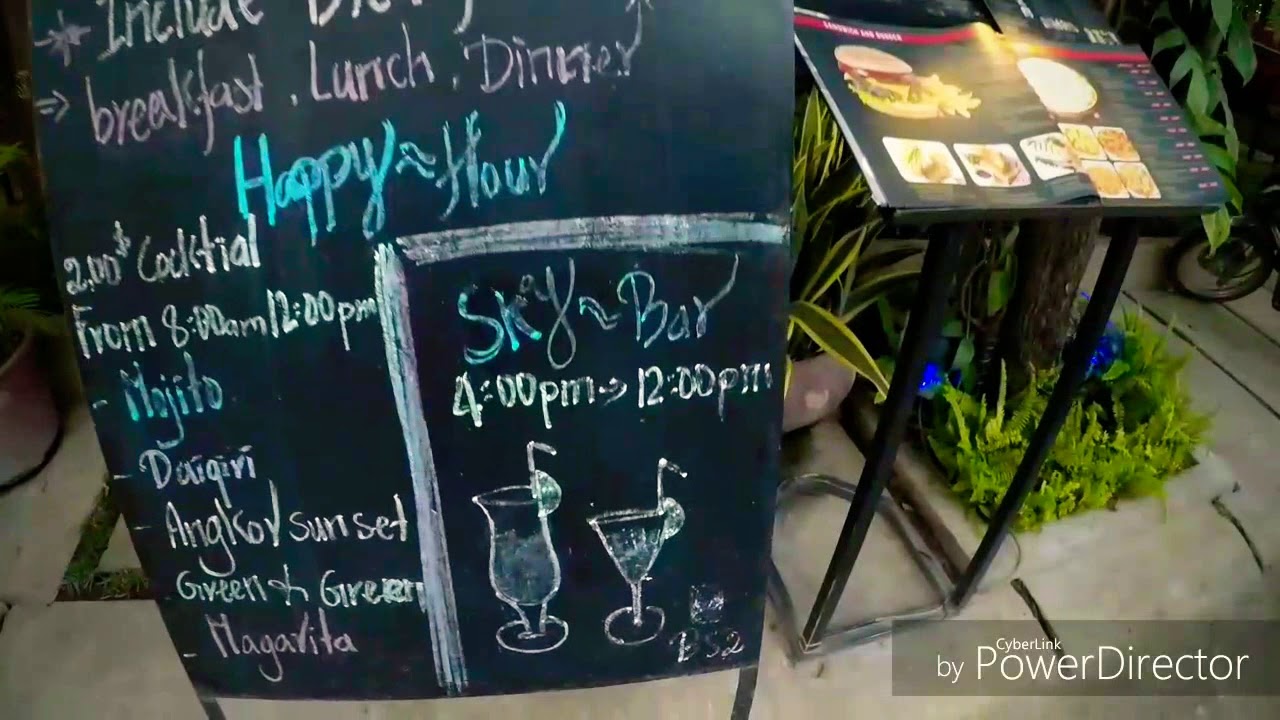 Include
=> breakfast , Lunch , Dinner
Happy~Hour
2.00$ Cocktial
From 8:00am/12:00pm
- Mojito
- Daiqiri
- Angkor sunset
Green & Green
- Magarita
Sky~Bar
4:00pm->12:00pm
BS2
SANDWICH AND BURGER
CyberLink
by PowerDirector